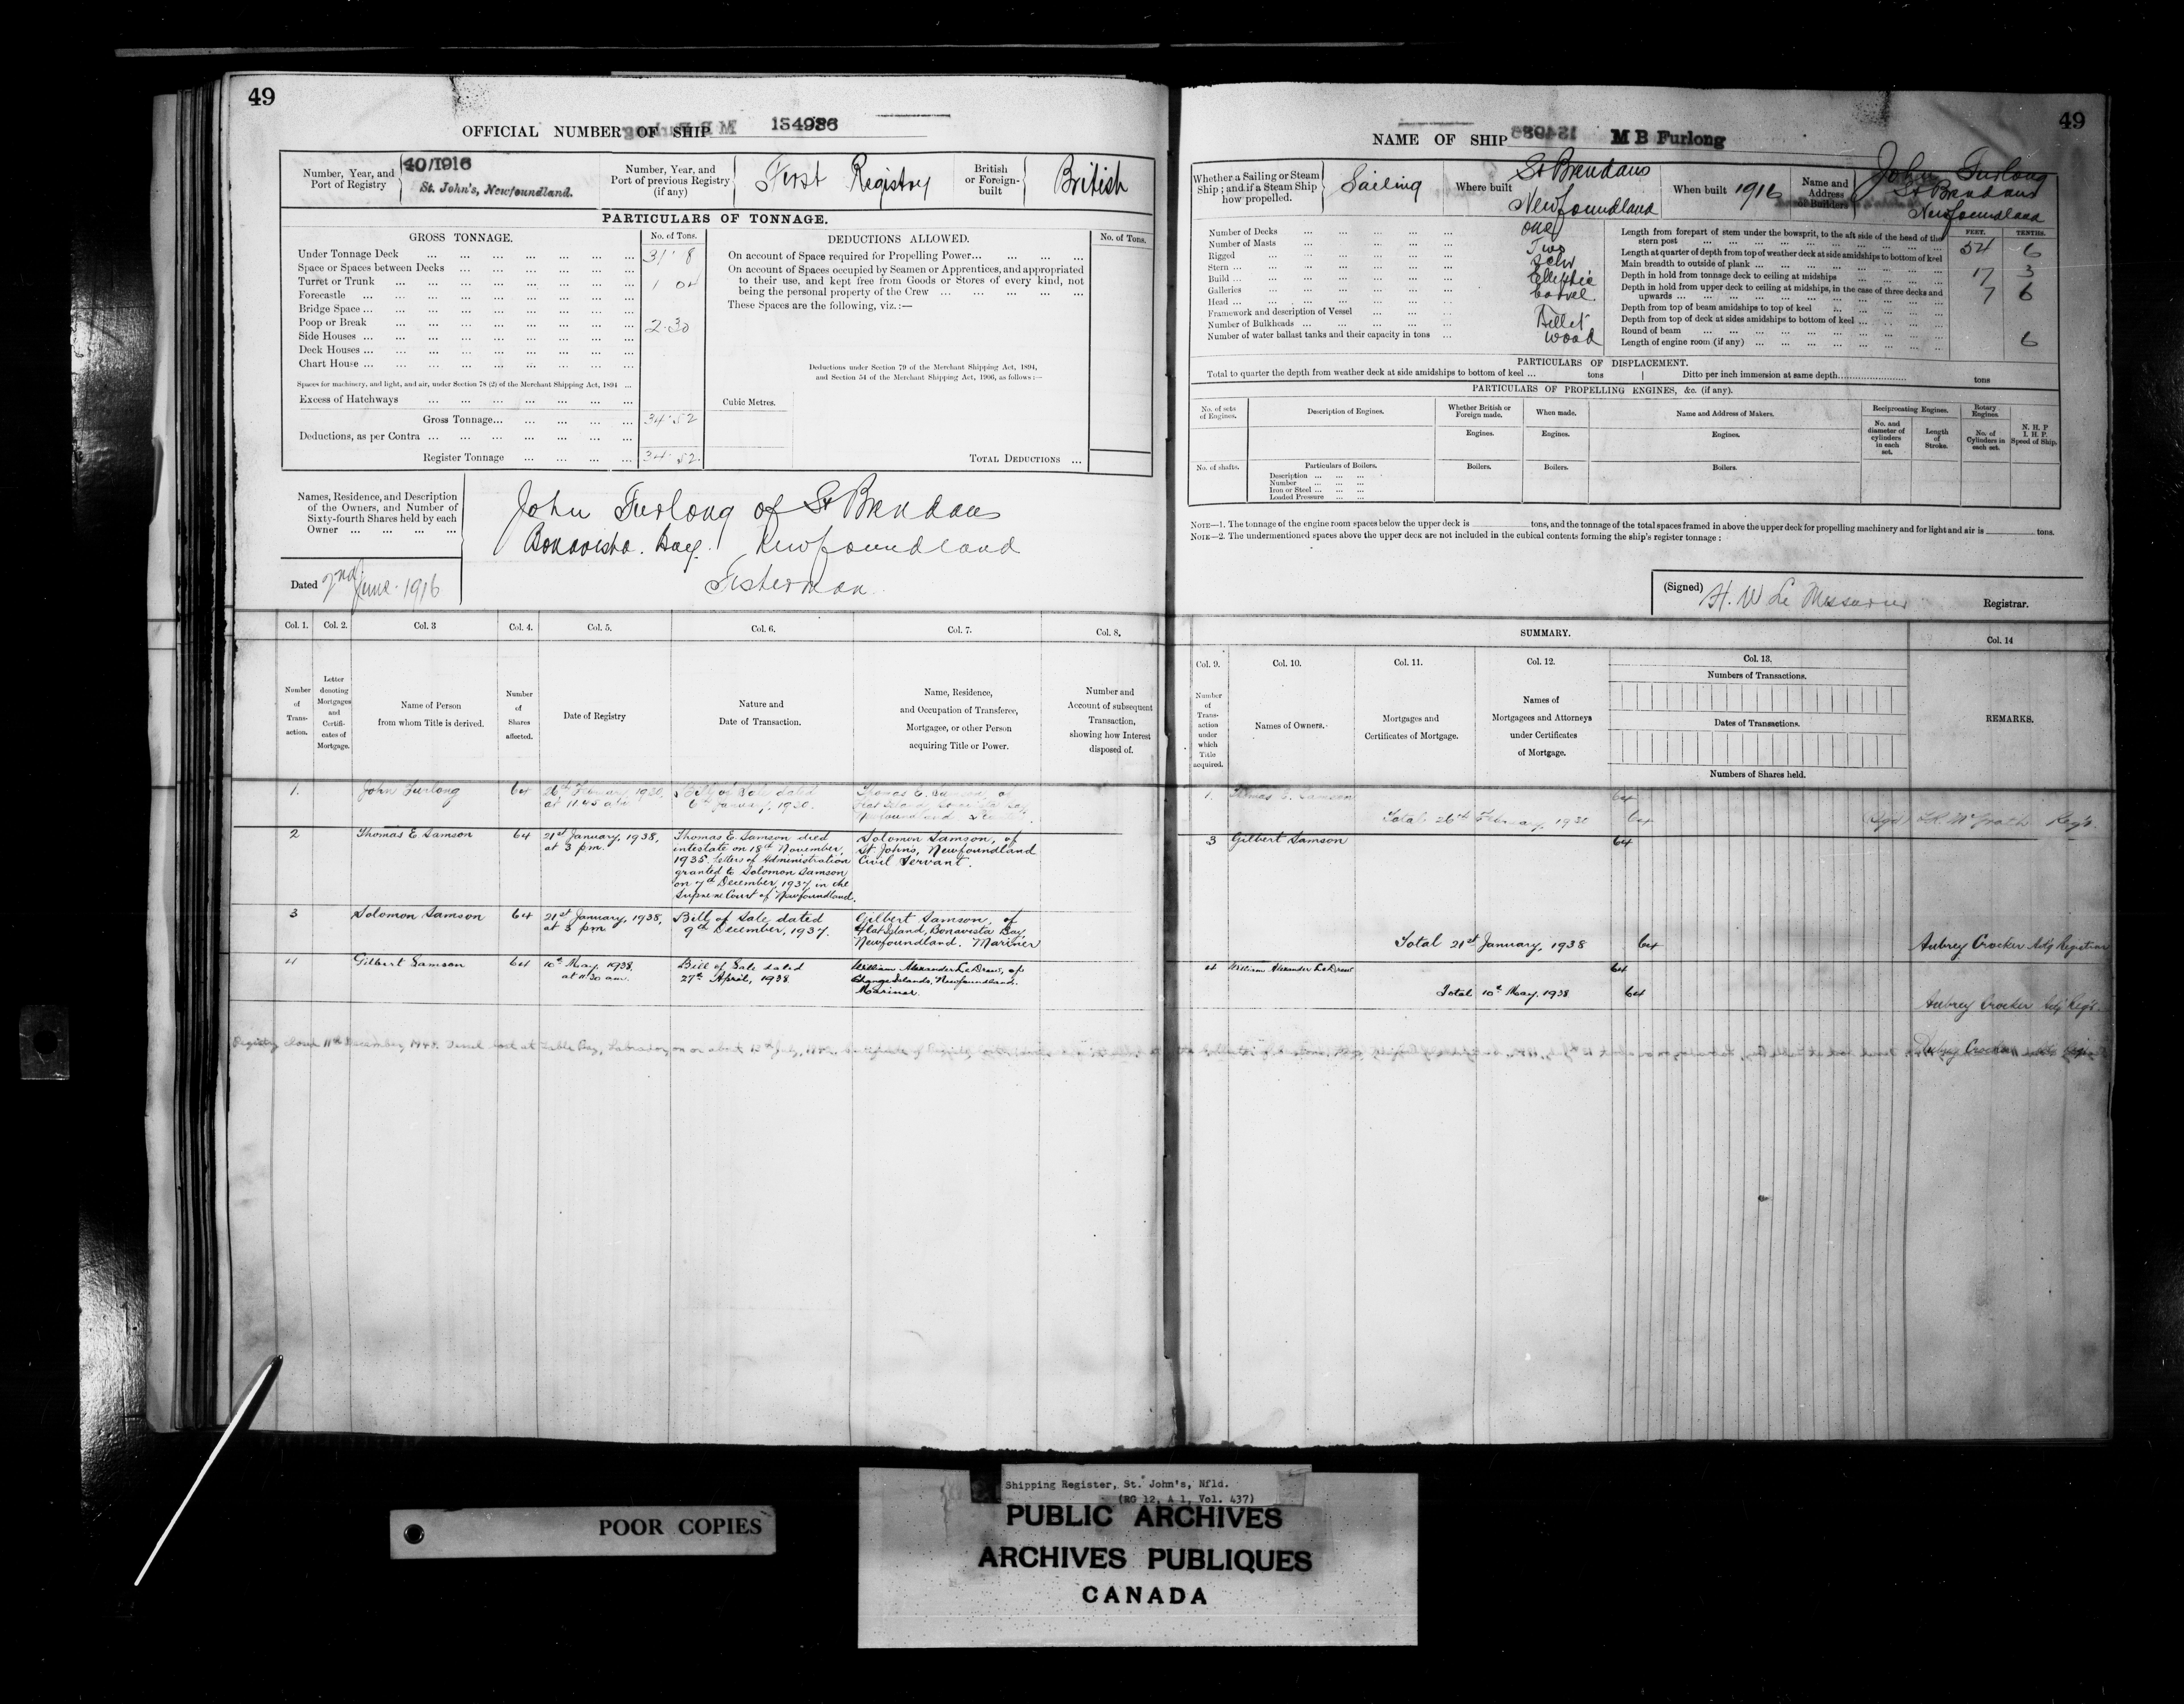 49
OFFICIAL NUMBER OF SHIP 134986
Number, Year, and Port of Registry
40/1916
St. John's, Newfoundland.
Number, Year, and Port of previous Registry (if any)
First Registry
British or Foreign-built
British
PARTICULARS OF TONNAGE.
GROSS TONNAGE.
No. of Tons.
Under Tonnage Deck 31 8
Space or Spaces between Decks
Turret or Trunk 1 04
Forecastle
Bridge Space
Poop or Break 2.30
Side Houses
Deck Houses
Chart House
Spaces for machinery, and light, and air, under Section 78 (2) of the Merchant Shipping Act, 1894
Excess of Hatchways
Gross Tonnage 34.52
Deductions, as per Contra
Register Tonnage 34.52
DEDUCTIONS ALLOWED.
No. of Tons.
On account of Space required for Propelling Power
On account of Spaces occupied by Seamen or Apprentices, and appropriated
to their use, and kept free from Goods or Stores of every kind, not
being the personal property of the Crew
These Spaces are the following, viz.:—
Deductions under Section 79 of the Merchant Shipping Act, 1894,
and Section 54 of the Merchant Shipping Act, 1906, as follows:—
Cubic Metres.
TOTAL DEDUCTIONS
Names, Residence, and Description
of the Owners, and Number of
Sixty-fourth Shares held by each
Owner
John Furlong of St Brendans
Bonavista Bay. Newfoundland
Fisherman
Dated 2nd June 1916
Col. 1. Col. 2. Col. 3 Col. 4. Col. 5. Col. 6. Col. 7. Col. 8.
Number of Transaction.
Letter denoting Mortgages and Certificates of Mortgage.
Name of Person from whom Title is derived.
Number of Shares affected.
Date of Registry
Nature and Date of Transaction.
Name, Residence, and Occupation of Transferee, Mortgagee, or other Person acquiring Title or Power.
Number and Account of subsequent Transaction, showing how Interest disposed of.
1. John Furlong 64 26th February, 1930, at 11.45 a.m. Bill of Sale dated 6th January, 1930. Thomas E. Samson, of Flat Island, Bonavista Bay, Newfoundland
2 Thomas E Samson 64 21st January, 1938, at 3 p.m. Thomas E. Samson died
intestate on 18th November,
1935. Letters of Administration
granted to Solomon Samson
on 7th December, 1937, in the
Supreme Court of Newfoundland.
Solomon Samson, of
St. John's, Newfoundland
Civil Servant.
3 Solomon Samson 64 21st January, 1938, at 3 p.m. Bill of Sale dated
9th December, 1937.
Gilbert Samson, of
Flat Island, Bonavista Bay,
Newfoundland. Mariner
4 Gilbert Samson 64 10th May, 1938, at 11.30 a.m. Bill of Sale dated
27th April, 1938
William Alexander LeDrew, of
Change Islands, Newfoundland.
Mariner.
Registry closed 11th December 1948. Vessel lost at Table Bay, Labrador, on or about
49
NAME OF SHIP M B Furlong
Whether a Sailing or Steam Ship; and if a Steam Ship how propelled.
Sailing
Where built
St Brendans
Newfoundland
When built 1916
Name and Address of Builders
John Furlong
St Brendans
Newfoundland
Number of Decks One
Number of Masts Two
Rigged Schr
Stern Elliptic
Build Carvel
Galleries
Head Billet
Framework and description of Vessel Wood
Number of Bulkheads
Number of water ballast tanks and their capacity in tons
FEET. TENTHS.
Length from forepart of stem under the bowsprit, to the aft side of the head of the stern post 54 6
Length at quarter of depth from top of weather deck at side amidships to bottom of keel
Main breadth to outside of plank 17 3
Depth in hold from tonnage deck to ceiling at midships 7 6
Depth in hold from upper deck to ceiling at midships, in the case of three decks and upwards
Depth from top of beam amidships to top of keel
Depth from top of deck at sides amidships to bottom of keel
Round of beam 6
Length of engine room (if any)
PARTICULARS OF DISPLACEMENT.
Total to quarter the depth from weather deck at side amidships to bottom of keel tons
Ditto per inch immersion at same depth tons
PARTICULARS OF PROPELLING ENGINES, &c. (if any).
No. of sets of Engines.
Description of Engines.
Whether British or Foreign made.
When made.
Name and Address of Makers.
Reciprocating Engines.
Rotary Engines.
N. H. P
I. H. P.
Speed of Ship.
No. and diameter of cylinders in each set.
Length of Stroke.
No. of Cylinders in each set.
Engines. Engines. Engines.
No. of shafts.
Particulars of Boilers.
Boilers. Boilers. Boilers.
Description
Number
Iron or Steel
Loaded Pressure
NOTE—1. The tonnage of the engine room spaces below the upper deck is tons, and the tonnage of the total spaces framed in above the upper deck for propelling machinery and for light and air is tons.
NOTE—2. The undermentioned spaces above the upper deck are not included in the cubical contents forming the ship's register tonnage:
(Signed) H. W Le Messurier Registrar.
SUMMARY.
Col. 9. Col. 10. Col. 11. Col. 12. Col. 13. Col. 14
Number of Transaction under which Title acquired.
Names of Owners.
Mortgages and Certificates of Mortgage.
Names of Mortgagees and Attorneys under Certificates of Mortgage.
Numbers of Transactions.
Dates of Transactions.
Numbers of Shares held.
REMARKS.
1. Thomas E. Samson 64
Total 26th February, 1930 64
3 Gilbert Samson 64
Total 21st January, 1938 64 Aubrey Crocker Actg Registrar
4 William Alexander LeDrew 64
Total 10th May, 1938 64 Aubrey Crocker Actg Regr.
Aubrey Crocker
POOR COPIES
Shipping Register, St. John's, Nfld.
(RG 12, A 1, Vol. 437)
PUBLIC ARCHIVES
ARCHIVES PUBLIQUES
CANADA